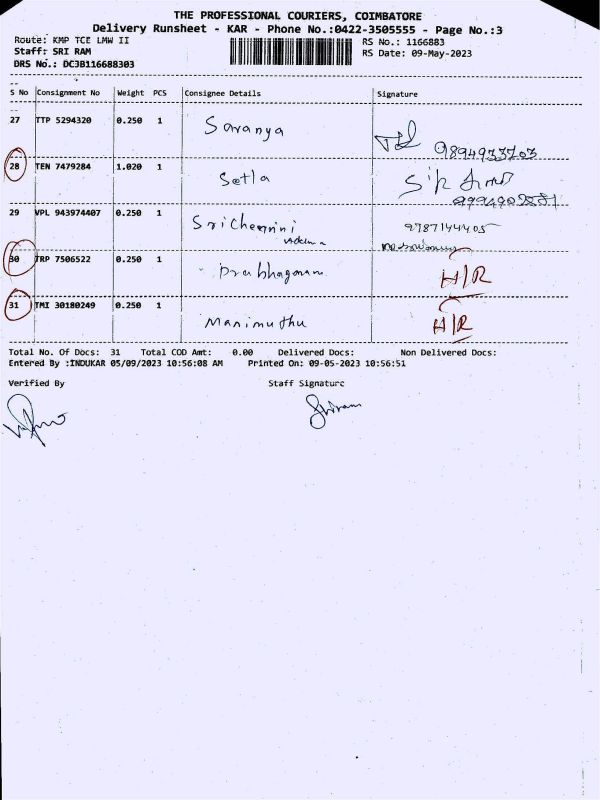 THE PROFESSIONAL COURIERS, COIMBATORE
Delivery Runsheet - KAR - Phone No.:0422-3505555 - Page No.:3
Route: KMP TCE LMW II
RS No.: 1166883
Staff: SRI RAM
RS Date: 09-May-2023
DRS No.: DC3B116688303
S No Consignment No Weight PCS Consignee Details Signature
27 TTP 5294320 0.250 1 Saranya
9894933703
28 TEN 7479284 1.020 1 Setla
29 VPL 943974407 0.250 1 Sri Chemini
9787144405
30 TRP 7506522 0.250 1 Prabhagaran H/R
31 TMI 30180249 0.250 1 Manimuthu H/R
Total No. Of Docs: 31 Total COD Amt: 0.00 Delivered Docs: Non Delivered Docs:
Entered By :INDUKAR 05/09/2023 10:56:08 AM Printed On: 09-05-2023 10:56:51
Verified By Staff Signature
Sriram